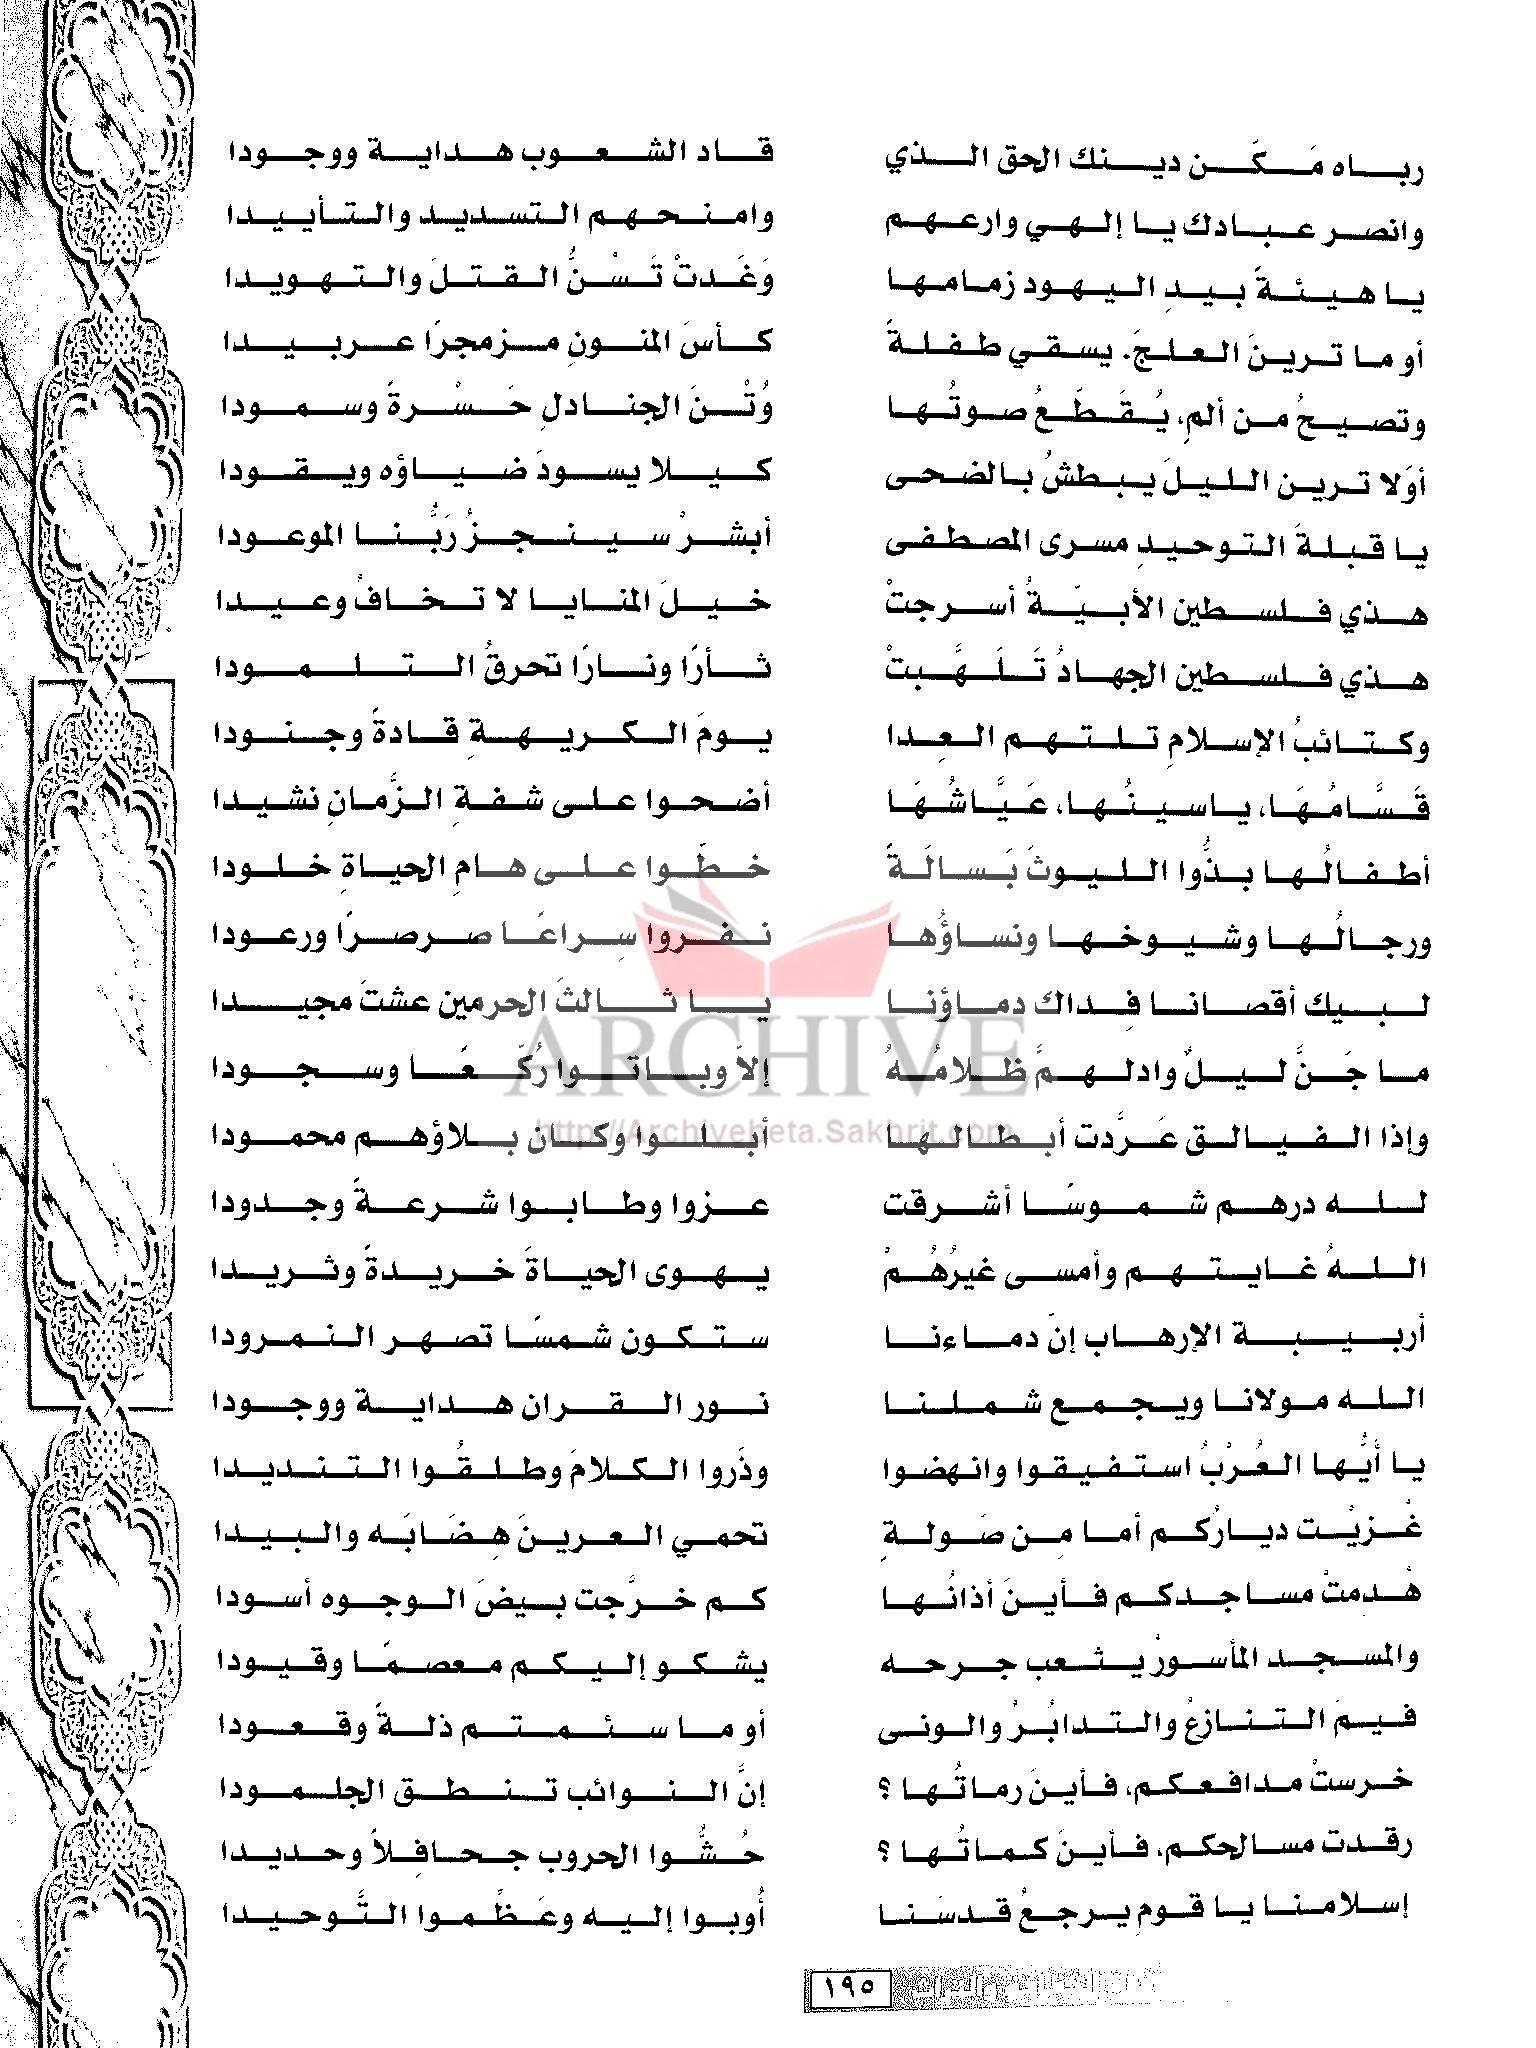 رباه مَكَّن دينك الحق الذي قاد الشعوب هداية ووجودا
وانصر عبادك يا إلهي وارعهم وامنحهم التسديد والتأييدا
يا هيئةً بيدِ اليهود زمامها وَغَدتْ تَسْنُّ القتلَ والتهويدا
أو ما ترينَ العلجَ. يسقي طفلةً كأسَ المنونِ مزمجرًا عربيدا
وتصيحُ من ألمٍ، يُقَطَّعُ صوتُها وُتُنَ الجنادلِ حَسْرةً وسمودا
أوَلا ترين الليلَ يبطشُ بالضحى كيلا يسودَ ضياؤه ويقودا
يا قبلةَ التوحيدِ مسرى المصطفى أبشرْ سينجزُ رَبُّنا الموعودا
هذي فلسطين الأبيّةُ أسرجتْ خيلَ المنايا لا تخافُ وعيدا
هذي فلسطين الجهادُ تَلَهَّبتْ ثأرًا ونارًا تحرقُ التلمودا
وكتائبُ الإسلامِ تلتهم العِدا يومَ الكريهةِ قادةً وجنودا
قَسَّامُهَا، ياسينُها، عَيَّاشُهَا أضحوا على شفةِ الزَّمانِ نشيدا
أطفالُها بذُّوا الليوثَ بَسالَةً خطَّوا على هامِ الحياةِ خلودا
ورجالُها وشيوخها ونساؤُها نفروا سِراعًا صرصرًا ورعودا
لبيك أقصانا فِداك دماؤنا يا ثالثَ الحرمين عشتَ مجيدا
ما جَنَّ ليلٌ وادلهمَّ ظلامُهُ إلاّ وباتوا رُكَّعًا وسجودا
وإذا الفيالق عَرَّدت أبطالها أبلوا وكان بلاؤهم محمودا
لله درهم شموسًا أشرقت عزوا وطابوا شرعةً وجدودا
اللهُ غايتهم وأمسى غيرُهُمْ يهوى الحياةَ خريدةً وثريدا
أربيبة الإرهاب إنّ دماءنا ستكون شمسًا تصهر النمرودا
الله مولانا ويجمع شملنا نور القران هداية ووجودا
يا أيُّها العُرْبُ استفيقوا وانهضوا وذَروا الكلامَ وطلقُوا التنديدا
غُزيْت ديارُكم أما مِن صَولةِ تحمي العرينَ هِضَابَه والبيدا
هُدمتْ مساجدكم فأينَ أذانُها كم خرَّجت بيضَ الوجوه أسودا
والمسجد المأسورُ يثعب جرحه يشكو إليكم معصمًا وقيودا
فيمَ التنازعُ والتدابُرُ والونى أو ما سئمتم ذلةً وقعودا
خرستْ مدافعكم، فأينَ رماتُها ؟ إنَّ النوائب تنطق الجلمودا
رقدت مسالحكم، فأينَ كماتُها ؟ حُشُّوا الحروب جحافِلاً وحديدا
إسلامنا يا قومِ يرجعُ قدسَنا أُوبوا إليه وعَظَّموا التَّوحيدا
ARCHIVE
http://Archivebeta.Sakhrit.com
١٩٥